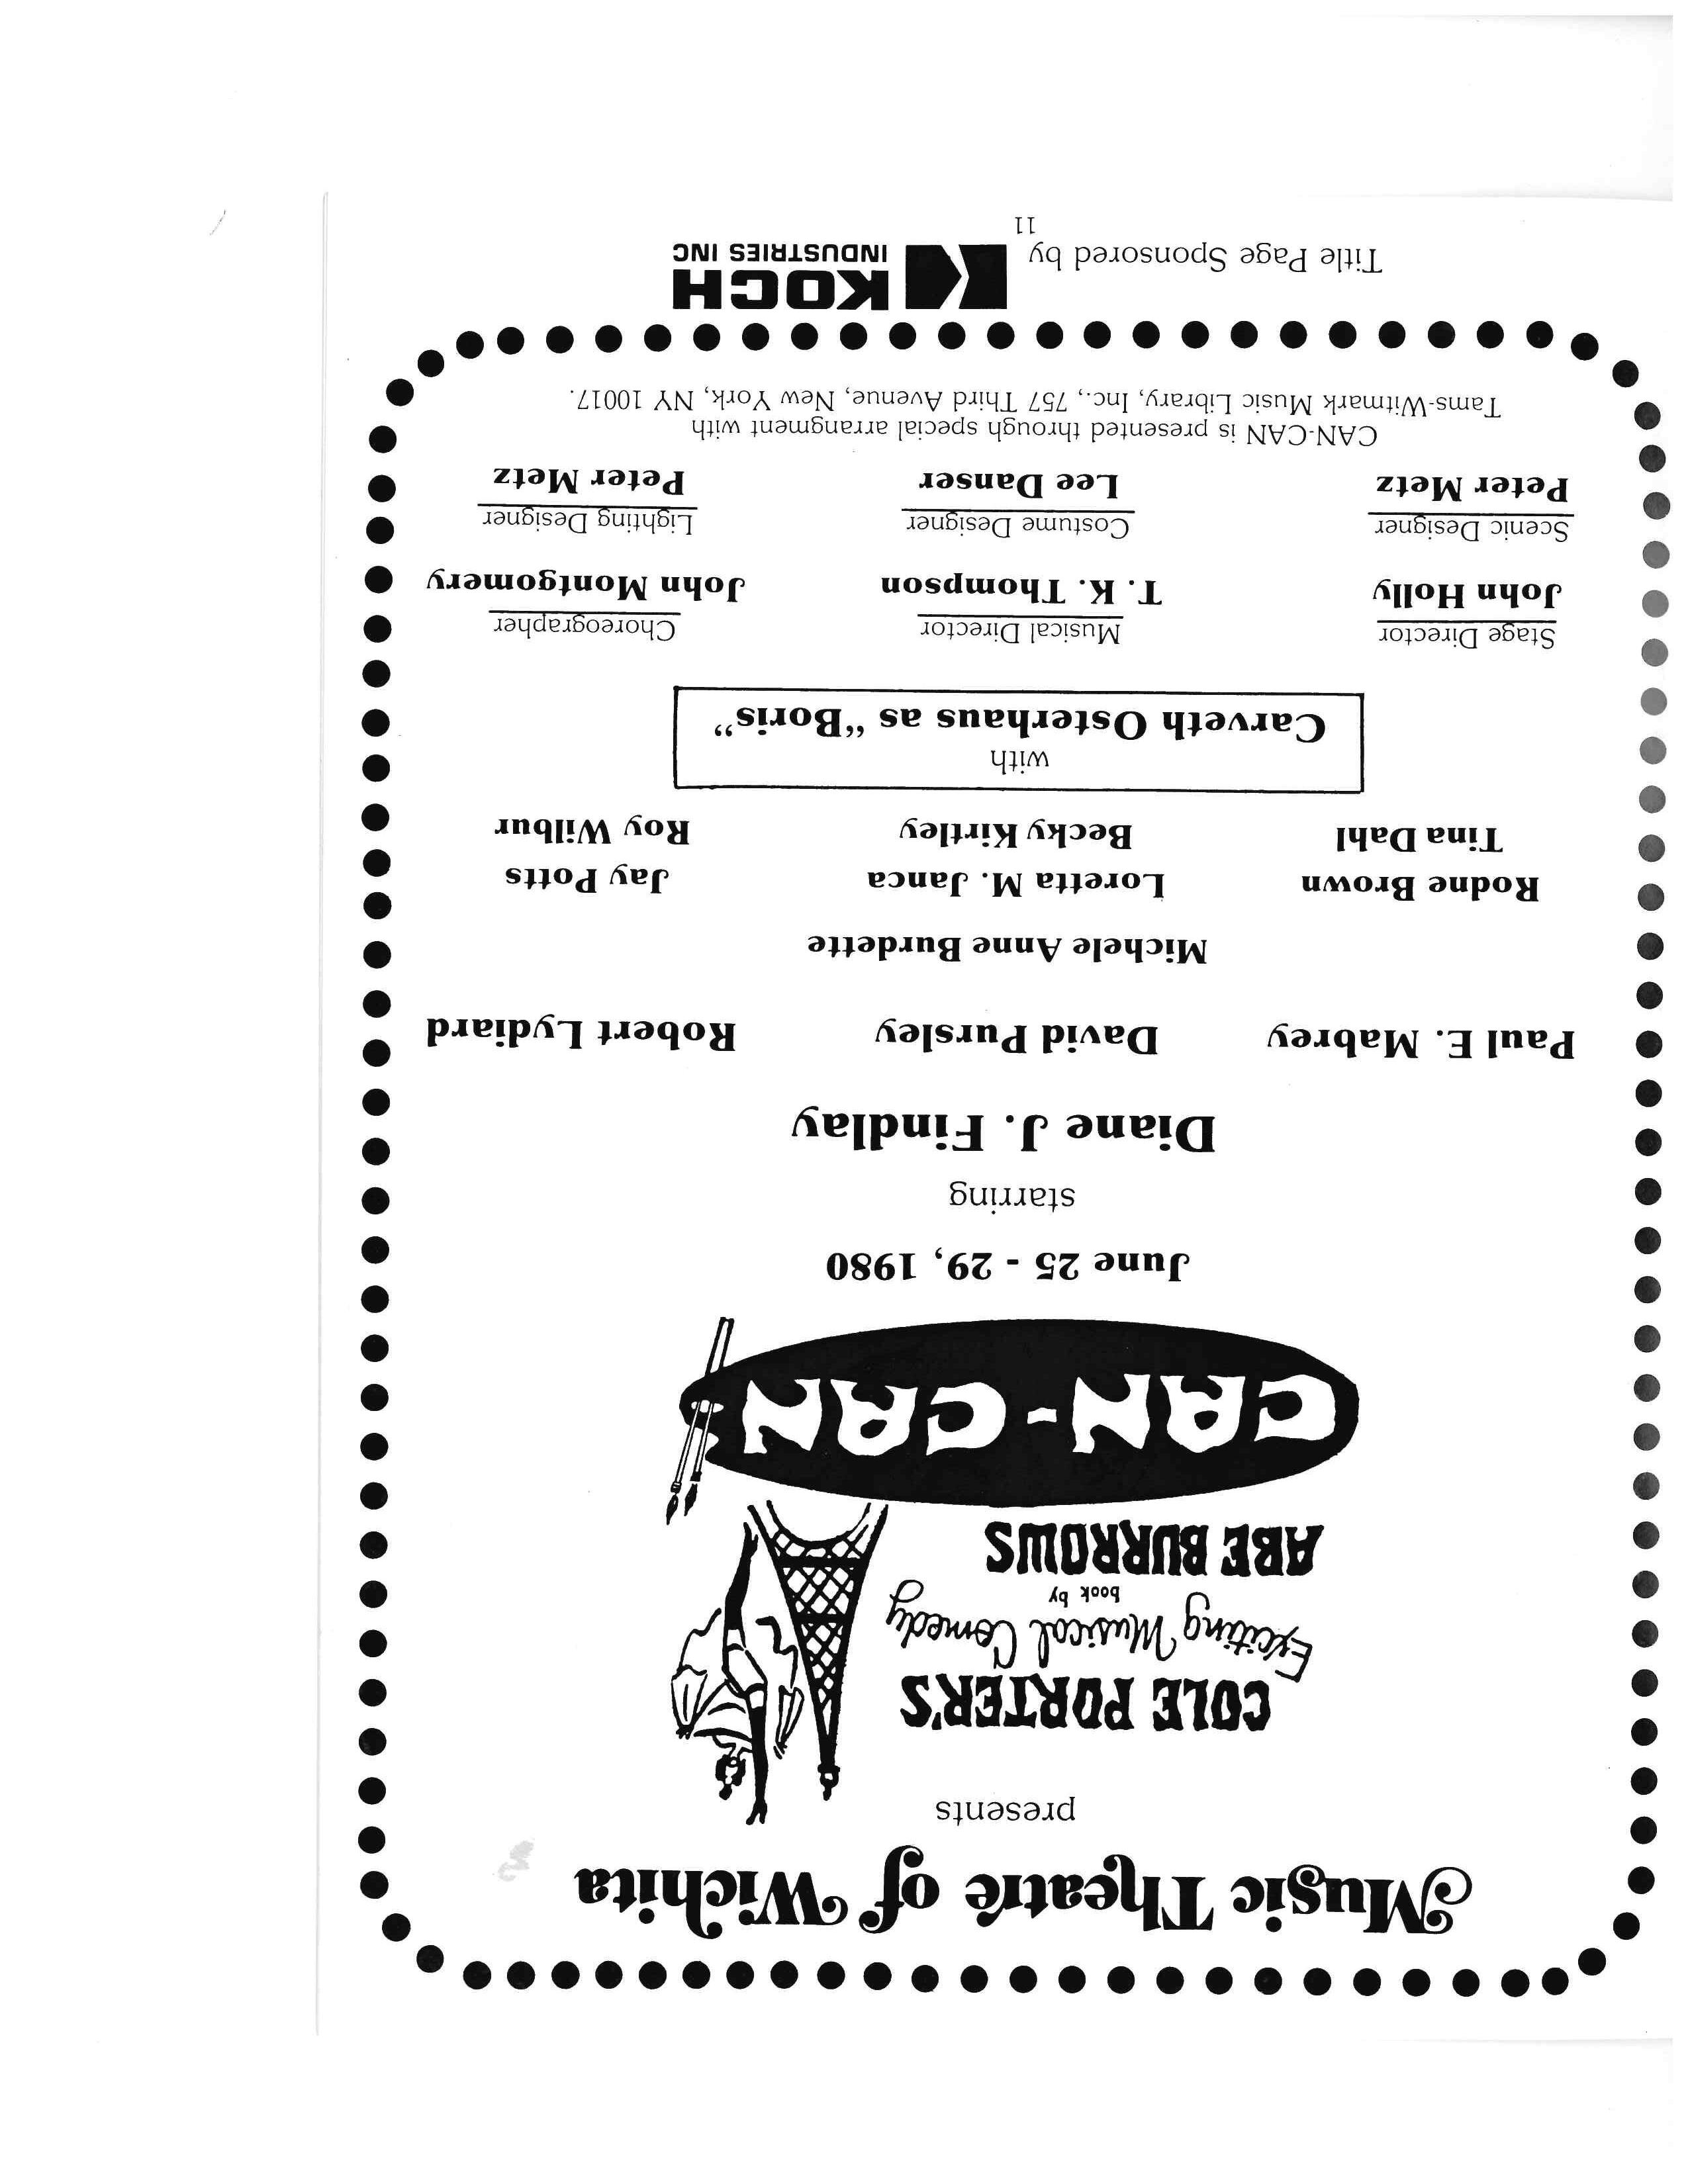 Music Theatre of Wichita
presents
COLE PORTER'S
Exciting Musical Comedy
book by
ABE BURROWS
CAN-CAN
June 25 - 29, 1980
starring
Diane J. Findlay
Paul E. Mabrey David Pursley Robert Lydiard
Michele Anne Burdette
Rodne Brown Loretta M. Janca Jay Potts
Tina Dahl Becky Kirtley Roy Wilbur
with
Carveth Osterhaus as "Boris"
Stage Director Musical Director Choreographer
John Holly T. K. Thompson John Montgomery
Scenic Designer Costume Designer Lighting Designer
Peter Metz Lee Danser Peter Metz
CAN-CAN is presented through special arrangment with
Tams-Witmark Music Library, Inc., 757 Third Avenue, New York, NY 10017.
Title Page Sponsored by KOCH
INDUSTRIES INC
11